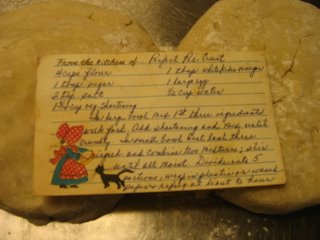 From the kitchen of... Perfect Pie Crust
4 cups flour 1 tbsp white/cider vinegar
1 tbsp sugar 1 large egg
2 tsp salt ½ cup water
1¾ cup veg shortening
In large bowl mix 1st three ingredients
with fork. Add shortening and mix until
crumbly. In small bowl beat last three
and combine two mixtures; stir
until all moist. Divide into 5
portions, wrap in plastic or waxed
paper & refrig at least ½ hour